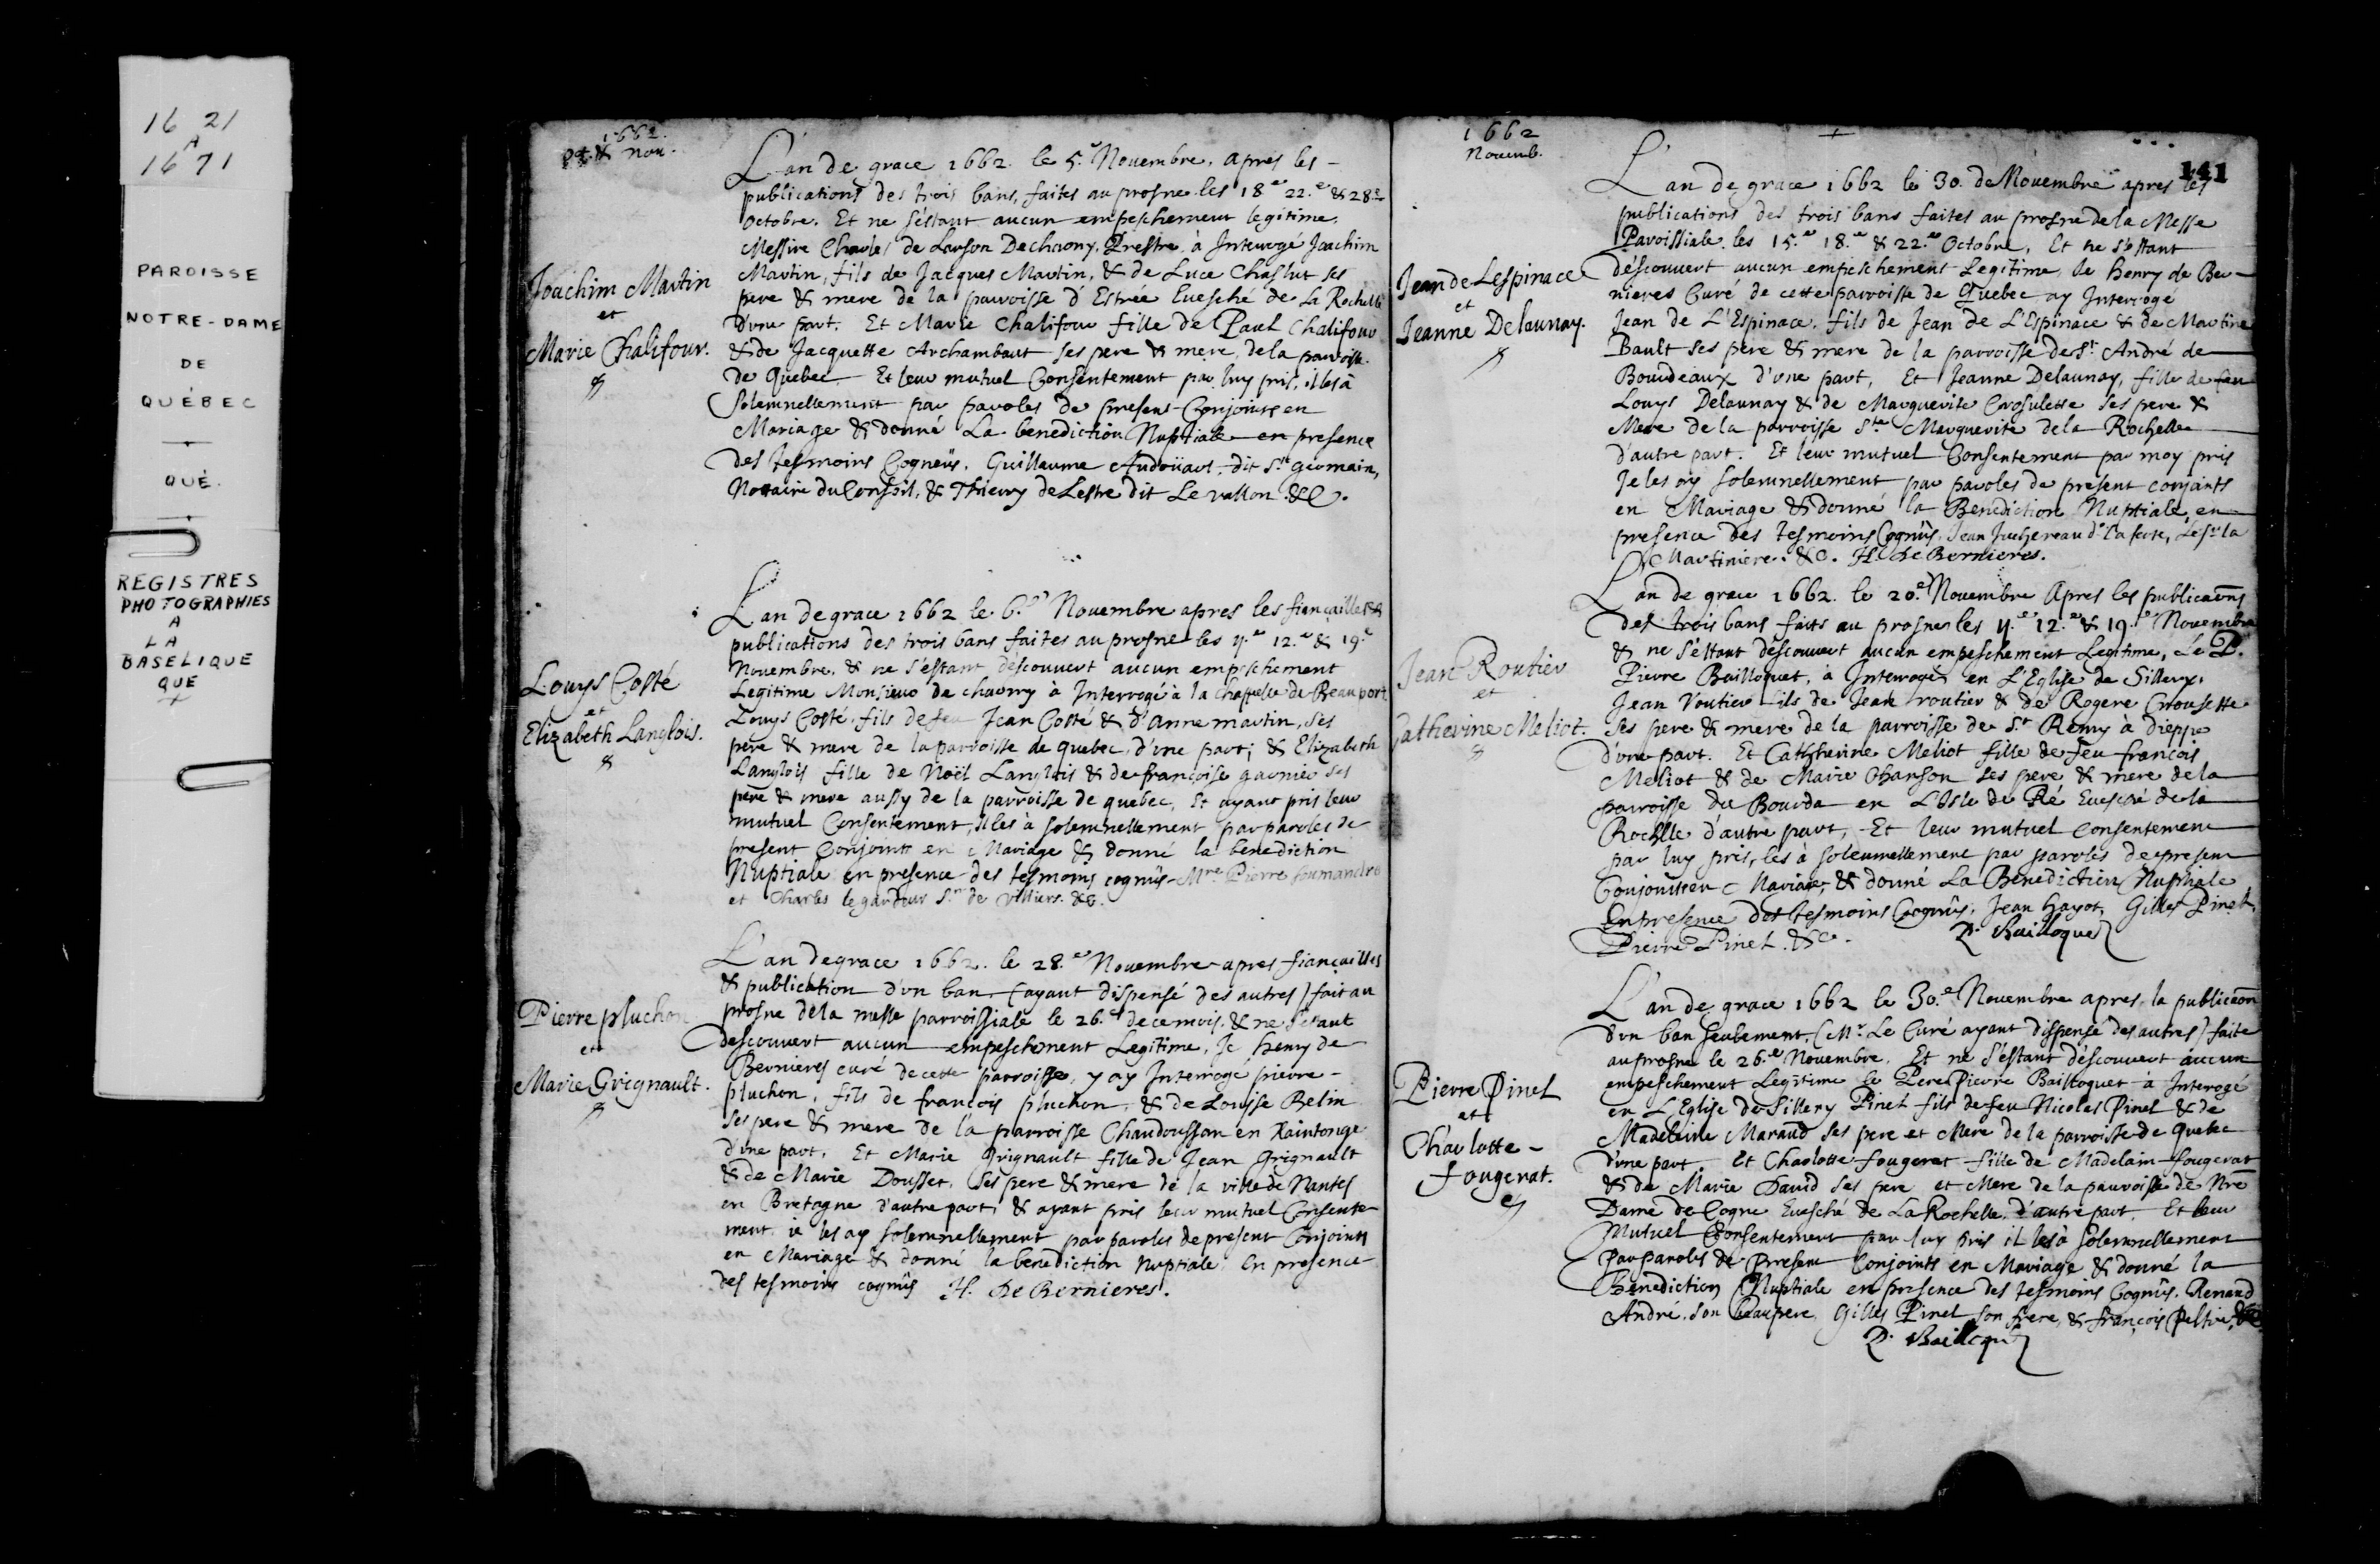 16 21
A
16 71
PAROISSE
NOTRE-DAME
DE
QUÉBEC
QUÉ.
REGISTRES
PHOTOGRAPHIES
A
LA
BASELIQUE
QUE
1662.
oct. & Nov.
L'an de grace 1662. le 5.e Novembre. apres les
publications des trois bans, faites au prosne les 18e 22.e & 28.e
Octobre. Et ne s'estant aucun empeschement legitime.
Messire Charles de Lauson Decharny. Prestre à Interrogé Joachim
Joachim Martin
et
Marie Chalifour.
Martin, fils de Jacques Martin, & de Luce Chaslut ses
pere & mere de la parroisse d'Estrée Evesché de La Rochelle
d'vne part. Et Marie Chalifour fille de Paul Chalifour
& de Jacquette Archambaut ses pere & mere, de la parroisse
de Quebec Et leur mutuel Consentement par luy pris, il les à
Solemnellement par paroles de present Conjoints en
Mariage & donné La benediction Nuptiale en presence
des tesmoins Cogneüs. Guillaume Audoüart dit St germain,
Nottaire du Conseil, & Thierry de Lestre dit Le vallon &c.
L'an de grace 1662 le 6.e Novembre apres les fiençailles &
publications des trois bans faites au prosne les y.e 12.e & 19.e
Novembre. & ne s'estant descouvert aucun empeschement
Louys Costé
et
Elizabeth Langlois.
Legitime Monsieur de charny à Interrogé à la chappelle de Beauport
Louys Costé. fils de feu Jean Costé & d'Anne martin, ses
pere & mere de la parroisse de quebec, d'vne part; & Elizabeth
Langlois fille de Noël Langlois & de françoise garnier ses
pere & mere aussy de la parroisse de quebec, Et ayant pris leur
mutuel Consentement, Il les à solemnellement par paroles de
present Conjoints en Mariage & donné la benediction
Nuptiale en presence des tesmoins cognüs Mre Pierre soumandre
et Charles legardeur Sr. de villiers. &c.
L'an de grace 1662. le 28.e Novembre apres fiançailles
& publication d'vn ban (ayant dispensé des autres) fait au
Pierre pluchon
et
Marie Grignault.
prosne de la messe parroissiale le 26.e de ce mois. & ne s'estant
descouvert aucun empeschement Legitime, Je henry de
Bernieres curé de cette parroisse, y ay Interrogé pierre
pluchon, fils de françois pluchon, & de Louise Belin
Ses pere & mere de la parroisse Chaudoussan en Xaintonge
d'vne part. Et Marie Grignault fille de Jean Grignault
& de Marie Dousset, ses pere & mere de la ville de Nantes
en Bretagne d'autre part; & ayant pris leur mutuel Consente-
ment, ie les ay solemnellement par paroles de present Conjoints
en Mariage & donné la benediction nuptiale. En presence
des tesmoins cognüs H. De Bernieres.
1662
Novemb.
141
L'an de grace 1662 le 30. de Novembre apres les
publications des trois bans faites au prosne de la Messe
Paroissiale les 15.e 18.e & 22.e Octobre, Et ne s'estant
Jean de Lespinace
et
Jeanne Delaunay.
déscouvert aucun empeschement Legitime, Je henry de Ber-
nieres Curé de cette parroisse de Quebec ay Interrogé
Jean de L'Espinace, fils de Jean de L'Espinace & de Martine
Bault ses pere & mere de la parroisse de St André de
Bourdeaux d'vne part, Et Jeanne Delaunay, fille de feu
Louys Delaunay & de Marguerite Crosulette ses pere &
Mere de la parroisse Ste Marguerite de la Rochelle
d'autre part. Et leur mutuel Consentement par moy pris
Je les ay solemnellement par paroles de present conjoints
en Mariage & donné la Benediction Nuptiale, en
presence des tesmoins Cognüs, Jean Juchereau d la ferte, Le sr la
Martiniere. &c. H. De Bernieres.
L'an de grace 1662. le 20.e Novembre Apres les publicaõns
des trois bans faits au prosne les y.e 12.e & 19.e Novembre
& ne s'estant descouvert aucun empeschement Legitime, Le P.
Jean Routier
et
Catherine Meliot.
Pierre Bailloquet, à Interrogé en L'Eglise de Sillery,
Jean routier fils de Jean routier & de Rogere Crousette
ses pere & mere de la parroisse de St Remy à dieppe
d'vne part. Et Cathherine Meliot fille de feu françois
Meliot & de Marie Chanson ses pere & mere de la
parroisse du Bourda en L'Isle de Ré Evesché de la
Rochelle d'autre part, Et leur mutuel Consentement
par luy pris, les à solemnellement par paroles de present
Conjoints en Mariage, & donné La Benediction Nuptiale
En presence des tesmoins Cognüs, Jean hayot, Gilles Pinel,
Pierre Pinel. &c. P. Bailloquet
L'an de grace 1662 le 30.e Novembre apres la publicaõn
d'vn ban seulement, (Mr. Le Curé ayant dispensé des autres) faite
au prosne le 26.e Novembre. Et ne s'estant déscouvert aucun
Pierre Pinel
et
Charlotte
fougerat.
empeschement Legitime le Pere Pierre Bailloquet à Interogé
en L'Eglise de Sillery Pinel fils de feu Nicolas Pinel & de
Madeleine Maraud ses pere et Mere de la parroisse de Quebec
d'vne part Et Charlotte fougerat fille de Madelain fougerat
& de Marie David ses pere et Mere de la parroisse de Nre
Dame de Cogne Evesché de La Rochelle d'autre part. Et leur
Mutuel Consentement par luy pris il les à solemnellement
par paroles de Present Conjoints en Mariage & donné la
Benediction Nuptiale en presence des tesmoins Cognüs. Renaud
André. son beaupere, Gilles Pinel son frere, & françois Peltier, &c
P. Bailloquet